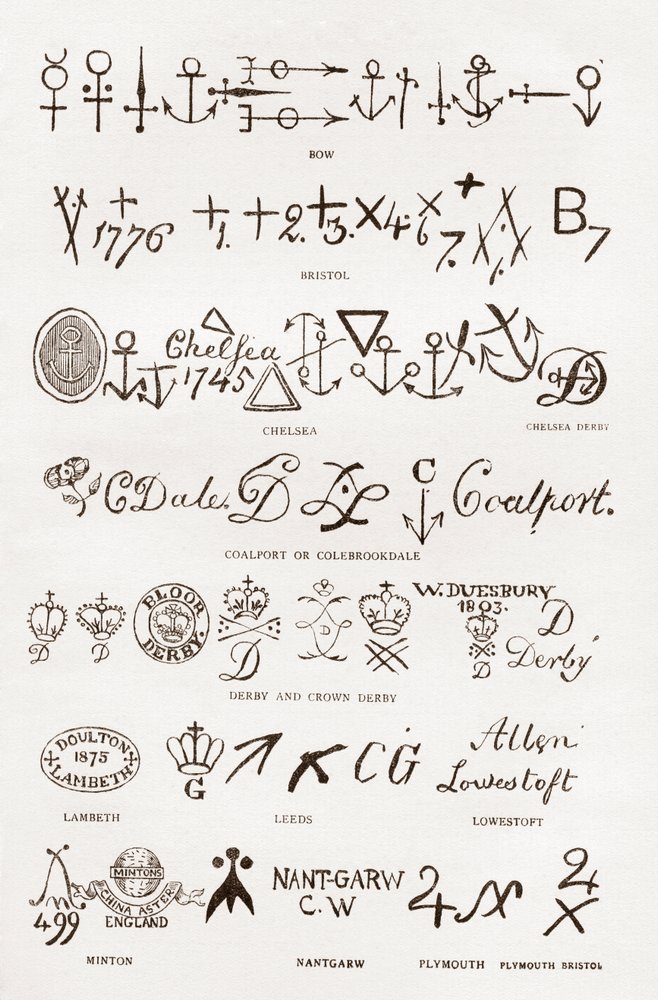 BOW
1776 1. 2. 3. 4. 6 7. 1. B7
BRISTOL
Chelsea
1745
D
CHELSEA
CHELSEA DERBY
CDale. CD C Coalport.
COALPORT OR COLEBROOKDALE
D D BLOOR DERBY. D D W. DUESBURY
1803.
D
D Derby
DERBY AND CROWN DERBY
DOULTON
1875
LAMBETH
G
CG
Allen
Lowestoft
LAMBETH
LEEDS
LOWESTOFT
499
MINTONS
CHINA ASTER
ENGLAND
NANT-GARW
C.W
MINTON
NANTGARW
PLYMOUTH
PLYMOUTH BRISTOL